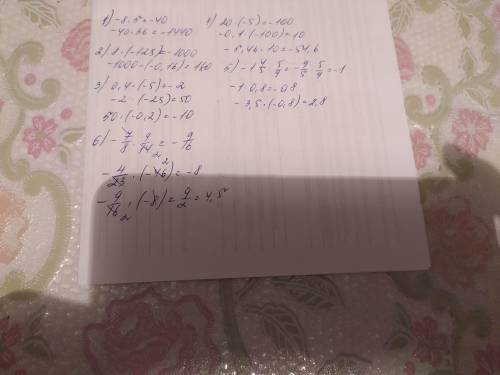 1) -8·5=-40
-40·36=-1440
2) 8·(-125)=-1000
-1000·(-0,16)=160
3) 0,4·(-5)=-2
-2·(-25)=50
50·(-0,2)=-10
6) -7/8·9/14₂=-9/16
-4/23·(-46)²=-8
-9/16₂·(-8)=9/2=4,5
20·(-5)=-100
-0,1·(-100)=10
-5,46·10=-54,6
5) -1 4/5·5/9=-9/5·5/9=-1
-1·0,8=-0,8
-3,5·(-0,8)=2,8